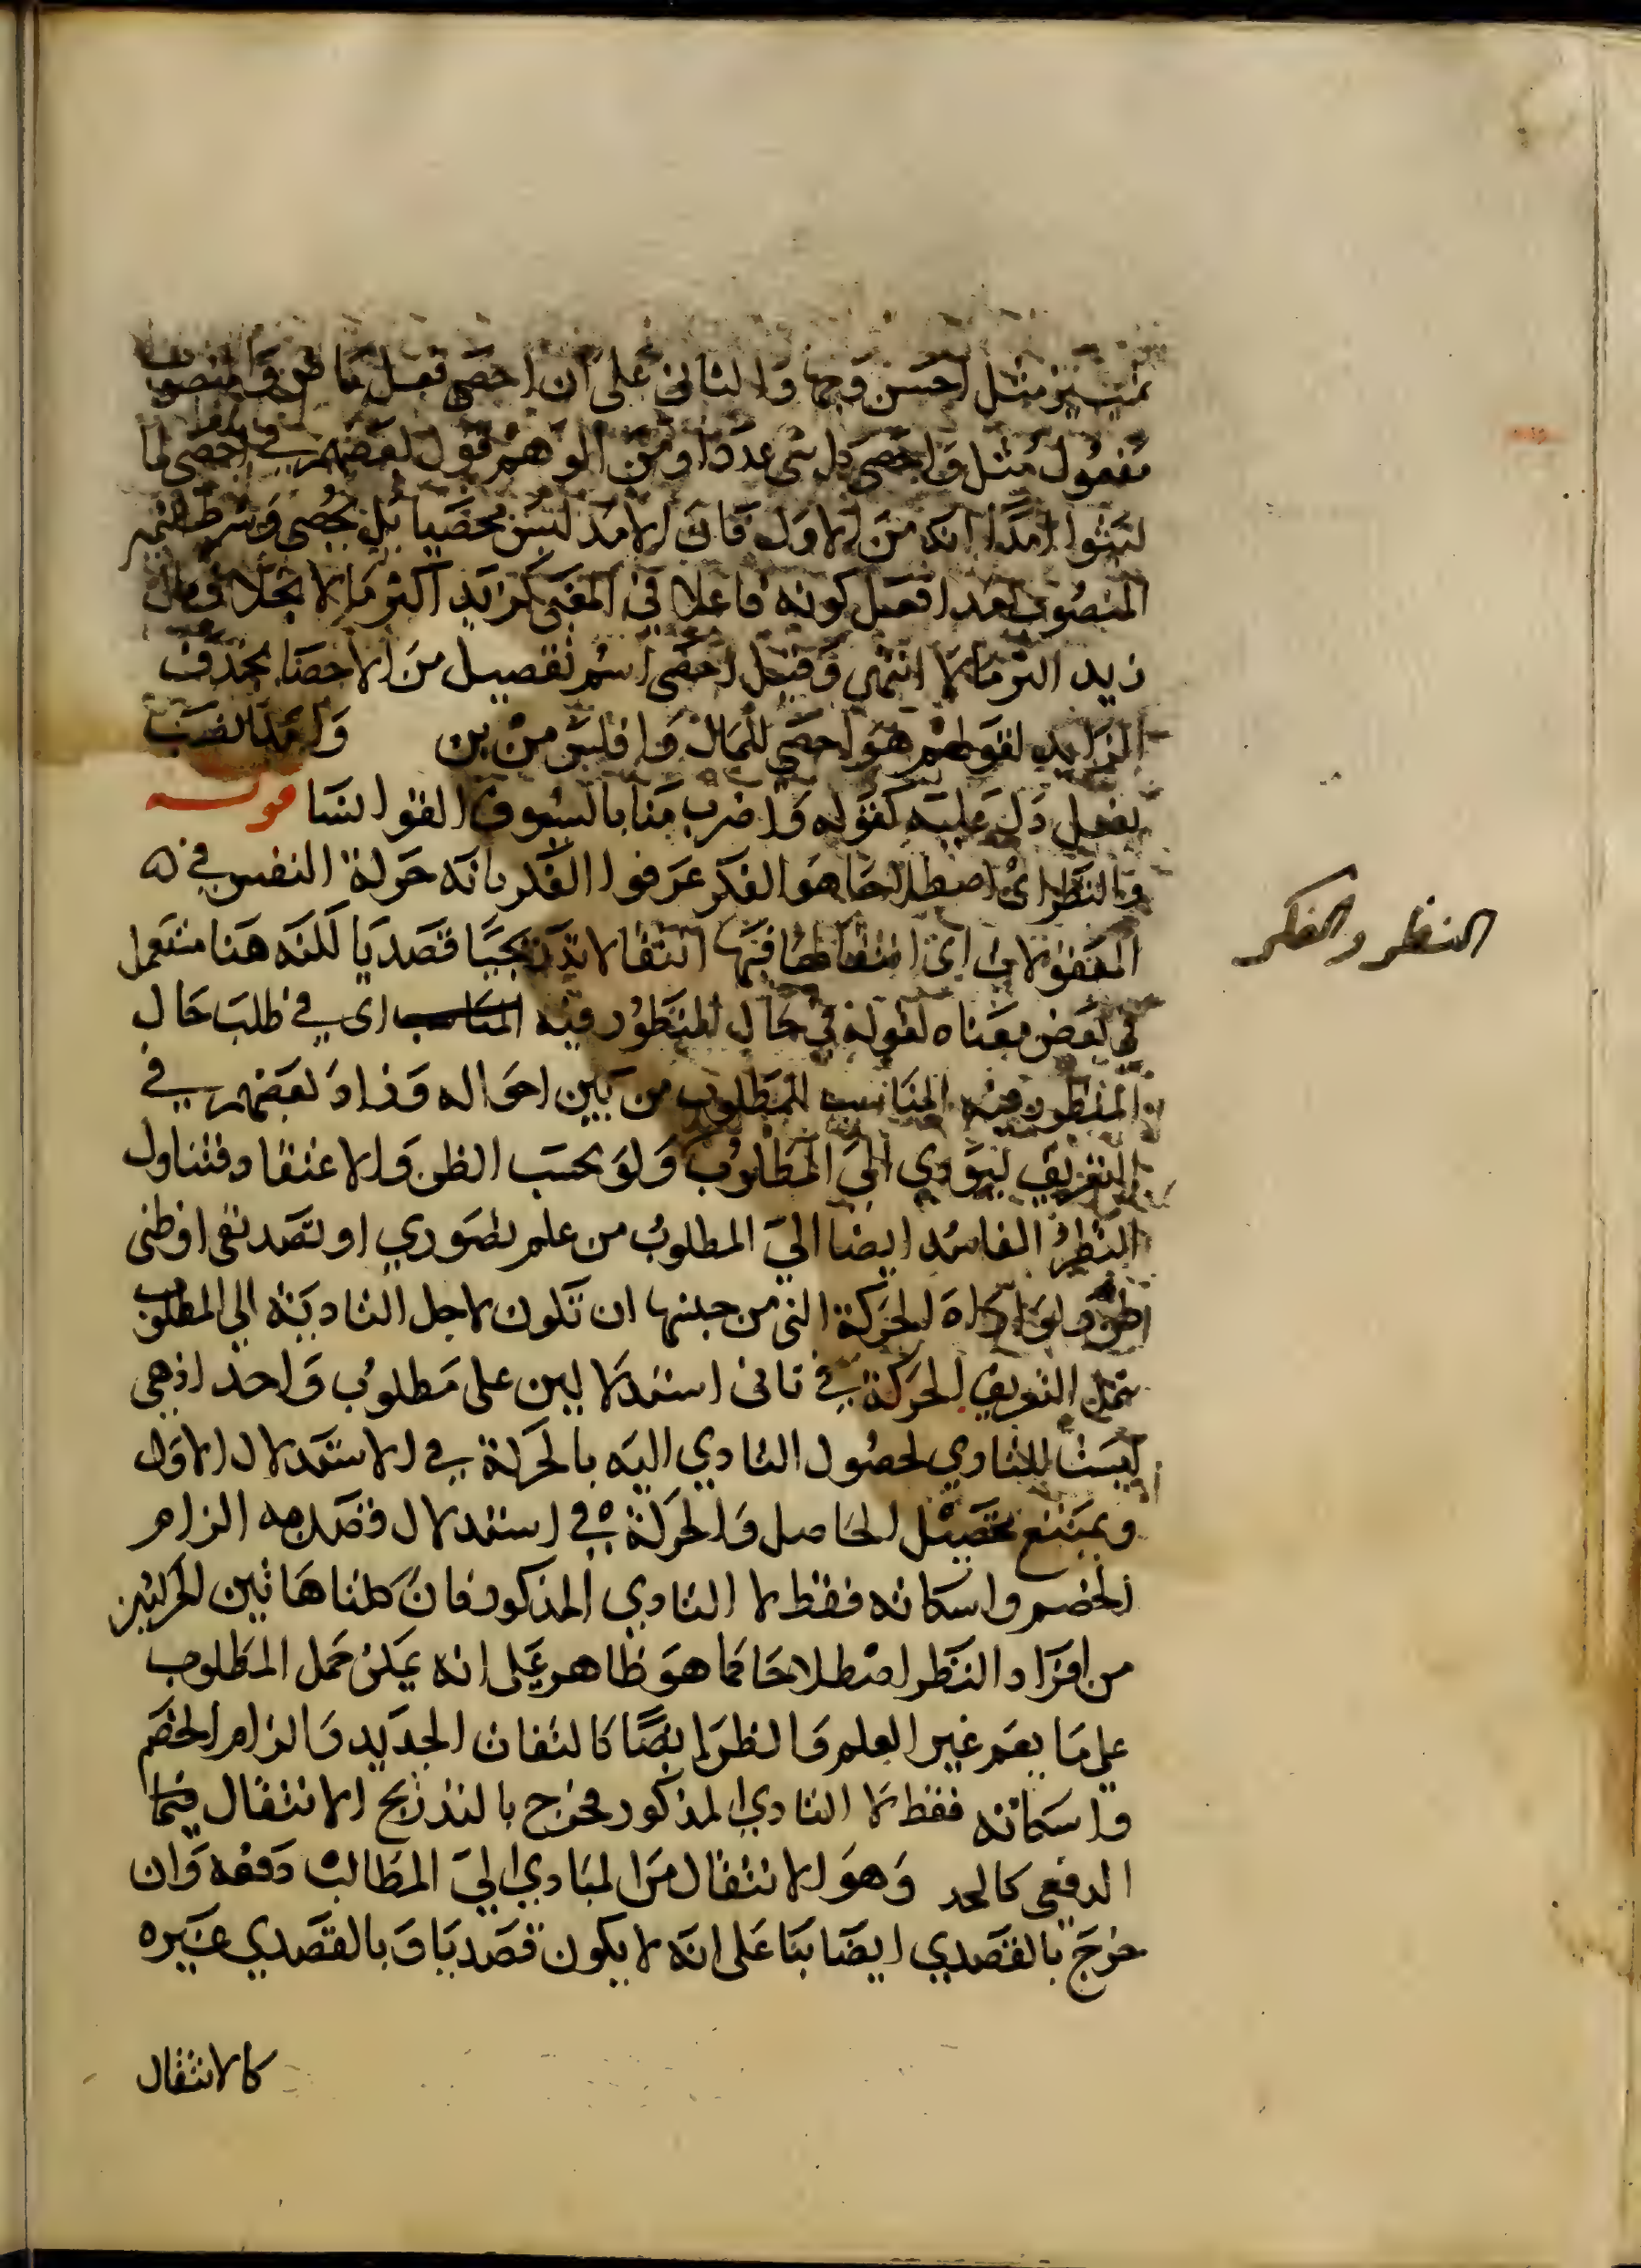 تمييز مثل احسن وجها والثاني على ان احصى فعل ماض والمنصوب
مفعول مثل واحصى كل شي عددا ومن الوهم قول بعضهم في احصى لما
لبثوا امدا انه من الاول فان الامد ليس محصيا بل يحصى وشرط التمييز
المنصوب بعد افعل كونه فاعلا في المعنى كزيد اكثر مالا بخلاف مال
زيد اكثر مالا انتهى وقيل احصى اسم تفضيل من الاحصا بحذف
الزايد لقولهم هو احصى للمال وافلس من بن وامدا نصب
بفعل دل عليه كقوله واضرب منا بالسيوف القوانسا قوله
والنظر اي اصطلاحا هو الفكر عرفوا الفكر بانه حركة النفس في
المعقولات اي انتقالها فيها انتقالا تدريجيا قصديا لكنه هنا مستعمل
في بعض معناه لقوله في حال المنظور فيه المناسب اي في طلب حال
المنظور فيه المناسب للمطلوب من بين احواله وزاد بعضهم في
التعريف ليودي الى المطلوب ولو بحسب الظن والاعتقاد فتناول
النظر الفاسد ايضا الى المطلوب من علم تصوري او تصديقي او ظني
الحركة التي من حينها ان تكون لاجل التادية الى المطلوب
التعريف الحركة في ثاني استدلالين على مطلوب واحد اذ هي
ليست للتادي لحصول التادي اليه بالحركة في الاستدلال الاول
ويمتنع تحصيل الحاصل والحركة في استدلال قصد به الزام
الخصم واسكاته فقط لا التادي المذكور فان كلتا هاتين الحركتين
من افراد النظر اصطلاحا كما هو ظاهر على انه يمكن حمل المطلوب
على ما يعم غير العلم والظن ايضا كالتفات الجديد والزام الخصم
واسكاته فقط لا التادي المذكور فخرج بالتدريج الانتقال فيها
الدفعي كالحد وهو الانتقال من المبادي الى المطالب دفعه وان
خرج بالقصدي ايضا بنا على انه لا يكون قصديا وبالقصدي غيره
كالانتقال
النظر والفكر